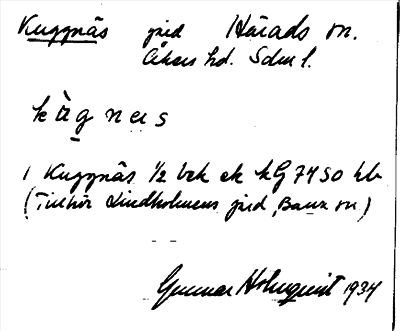 Kuggnäs jrd Härads sn.
Åkers hd. Sdm l.
kùgnɛs
1 Kuggnäs 1/2 bek ek kG 7450 hb
(Tillhör Lindholmens jrd, Barva sn)
Gunnar Holmquist 1934